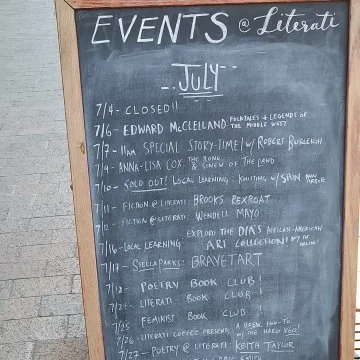 EVENTS @ Literati
JULY
7/4 - CLOSED!!
7/6 - EDWARD McCLELLAND: FOLKTALES + LEGENDS OF THE MIDDLE WEST
7/7 - 11am SPECIAL STORY-TIME! w/ ROBERT BURLEIGH
7/9 - ANNA-LISA COX: THE BONE & SINEW OF THE LAND
7/10 - SOLD OUT! LOCAL LEARNING: KNITTING w/ SPUN
7/11 - FICTION @ LITERATI: BROOKS REXROAT
7/12 - FICTION @ LITERATI: WENDELL MAYO
7/16 - LOCAL LEARNING: EXPLORE THE DIA'S AFRICAN-AMERICAN ART COLLECTION!
7/17 - STELLA PARKS: BRAVETART
7/18 - POETRY BOOK CLUB!
LITERATI BOOK CLUB!
7/25 FEMINIST BOOK CLUB!
7/26 - LITERATI COFFEE PRESENTS: A BREW HOW-TO w/ THE HARIO V60!
7/27 - POETRY @ LITERATI: KEITH TAYLOR